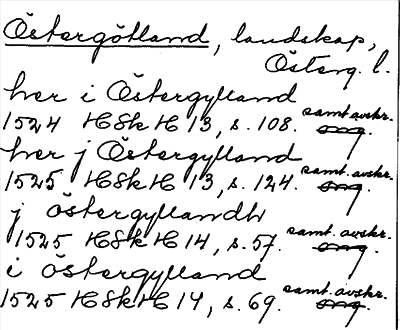 Östergötland, landskap,
Österg. l.
her i Östergylland
1524 HSkH 13, s. 108. samt. avskr.
her j Östergylland
1525 HSkH 13, s. 124. samt. avskr.
j östergyllandh
1525 HSkH 14, s. 57. samt. avskr.
i östergylland
1525 HSkH 14, s. 69. samt. avskr.